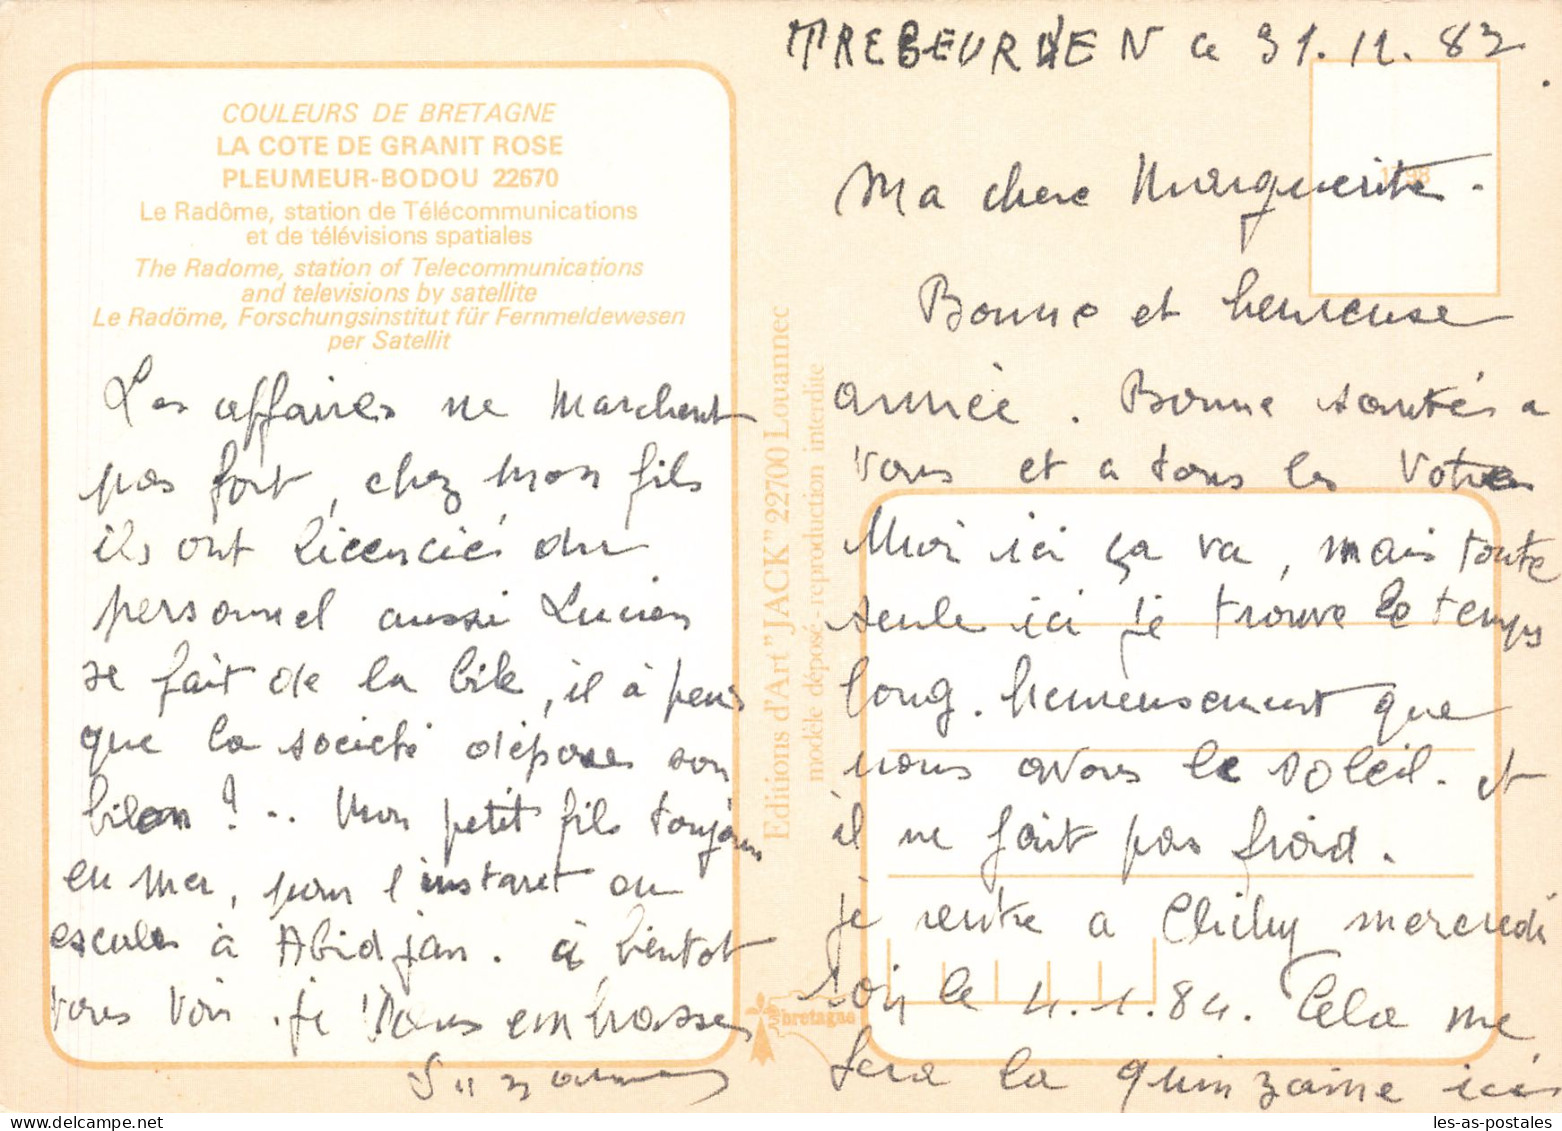 COULEURS DE BRETAGNE
LA COTE DE GRANIT ROSE
PLEUMEUR-BODOU 22670
Le Radôme, station de Télécommunications
et de télévisions spatiales
The Radome, station of Telecommunications
and televisions by satellite
Le Radôme, Forschungsinstitut für Fernmeldewesen
per Satellit
Editions d'Art "JACK" 22700 Louannec
modèle déposé - reproduction interdite
bretagne
1198
TREBEURDEN ce 31.12.83
Ma chere Marguerite.
Bonne et heureuse
année. Bonne santés a
vous et a tous les Votres
Moi ici ça va, mais toute
seule ici je trouve le temps
long. heureusement que
nous avons le soleil. et
il ne fait pas froid.
je rentre a Clichy mercredi
soir le 4.1.84. Cela me
fera la quinzaine ici
Les affaires ne marchent
pas fort, chez mon fils
ils ont licencié du
personnel aussi Lucien
se fait de la bile, il à peur
que la société dépose son
bilan ?.. Mon petit fils toujours
en mer, pour l'instant en
escales à Abidjan. à bientot
vous voir. je vous embrasse
Suzanne
les-as-postales